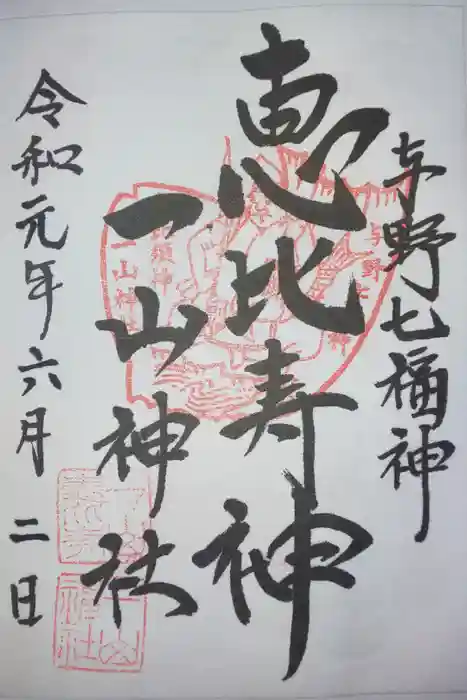 与野七福神
恵比寿神
一山神社
令和元年六月二日
一山神社